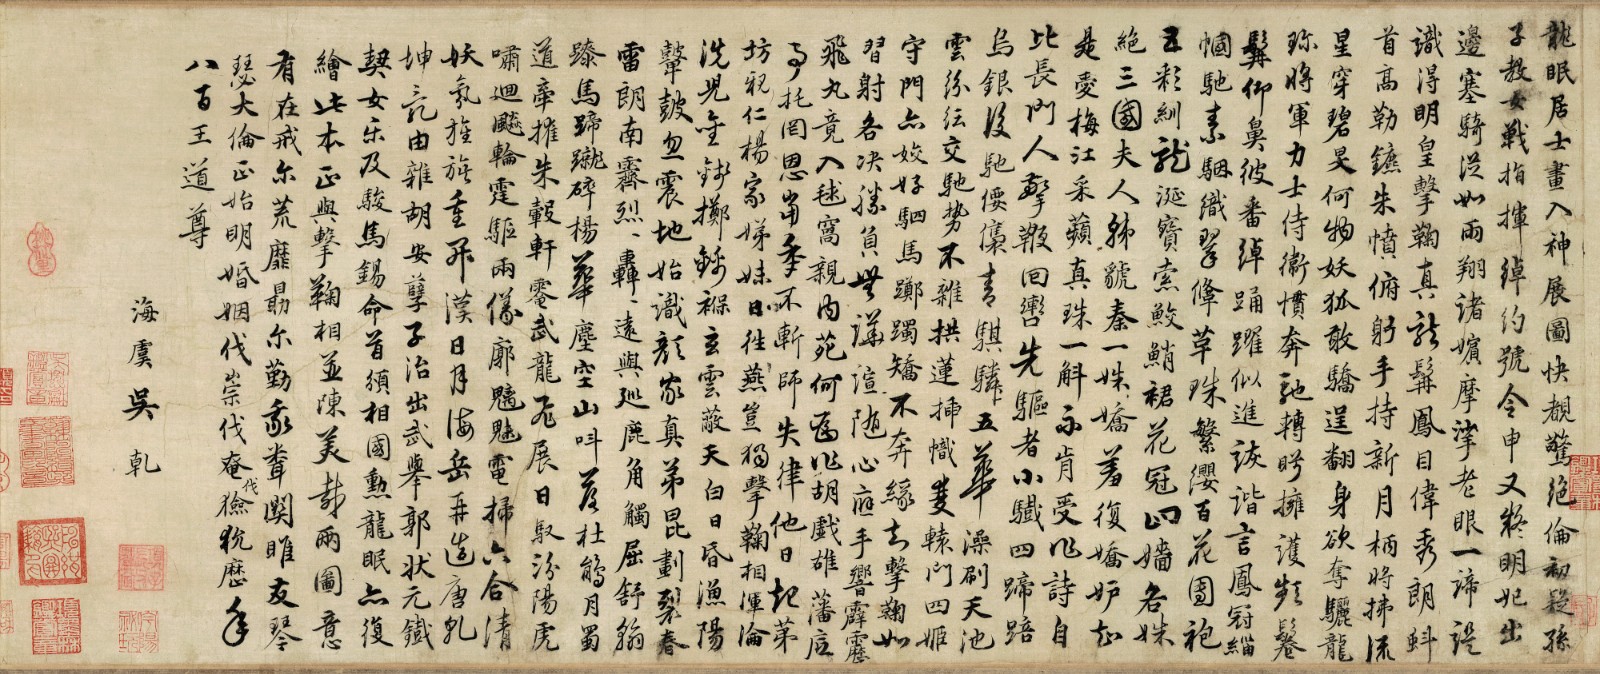 龍眠居士畫入神展圖快覩驚絕倫初疑孫
子教女戰指揮綽約號令申又疑明妃出
邊塞騎從如雨翔諸嬪摩挲老眼一諦認
識得明皇擊鞠真龍髯鳳目偉秀朗虯
首高勒鑣朱幩俯躬手持新月柄將拂流
星穿碧旻何物妖狐敢驕逞翻身欲奪驪龍
珎將軍力士侍衛慣奔馳轉眄擁護頻鬈
髯仰鼻彼番綽踊躍似進詼諧言鳳冠緇
幗馳素駰織翠鞗革珠繁纓百花團袍
五彩紃龍涎寶索鮫鮹裙花冠四嬙各姝
絕三國夫人韓虢秦一姝嬌羞復嬌妒知
是愛梅江采蘋真珠一斛不肯受作詩自
比長門人擎鞭回轡先驅者小驖四蹄踣
烏銀後馳僾儓青騏驎五華澡刷天池
雲紛紜交馳勢不雜拱蓮揷幟雙轅門四姬
守門亦姣好駟馬躑躅矯不奔緣知擊鞠如
習射各决勝負無譁諠隨心應手響霹靂
飛丸竟入毬窩親內苑何爲作胡戲雄藩
事托罔恩甯季不斬師失律他日起第
坊親仁楊家娣妹日徃燕豈獨擊鞠相渾淪
洗兒金錢擲錦褓玄雲蔽天白日昏漁陽
鼙鼓忽震地始識顔家真弟昆劃裂春
雷朗南霽烈烈轟轟遠與巡鹿角觸屈舒翰
臻馬蹄蹴碎楊華塵空山叫落杜鵑月蜀
道牽摧朱轂軒靈武龍飛展日馭汾陽虎
嘯迴飈輪霆驅兩儀廓魑魅電掃六合清
妖氛旌旂重開漢日月海岳再造唐乾
坤亂由雜胡安孽子治出武舉郭狀元鐵
契女樂及駿馬錫命首頒相國勲龍眠亦復
繪此本正與擊鞠相並陳美哉兩圖意
有在戒尔荒靡勗尔勤我聋関雎友琴
瑟大倫正始明婚姻代崇代奄代獫狁歷年
八百王道尊
海虞吳乾